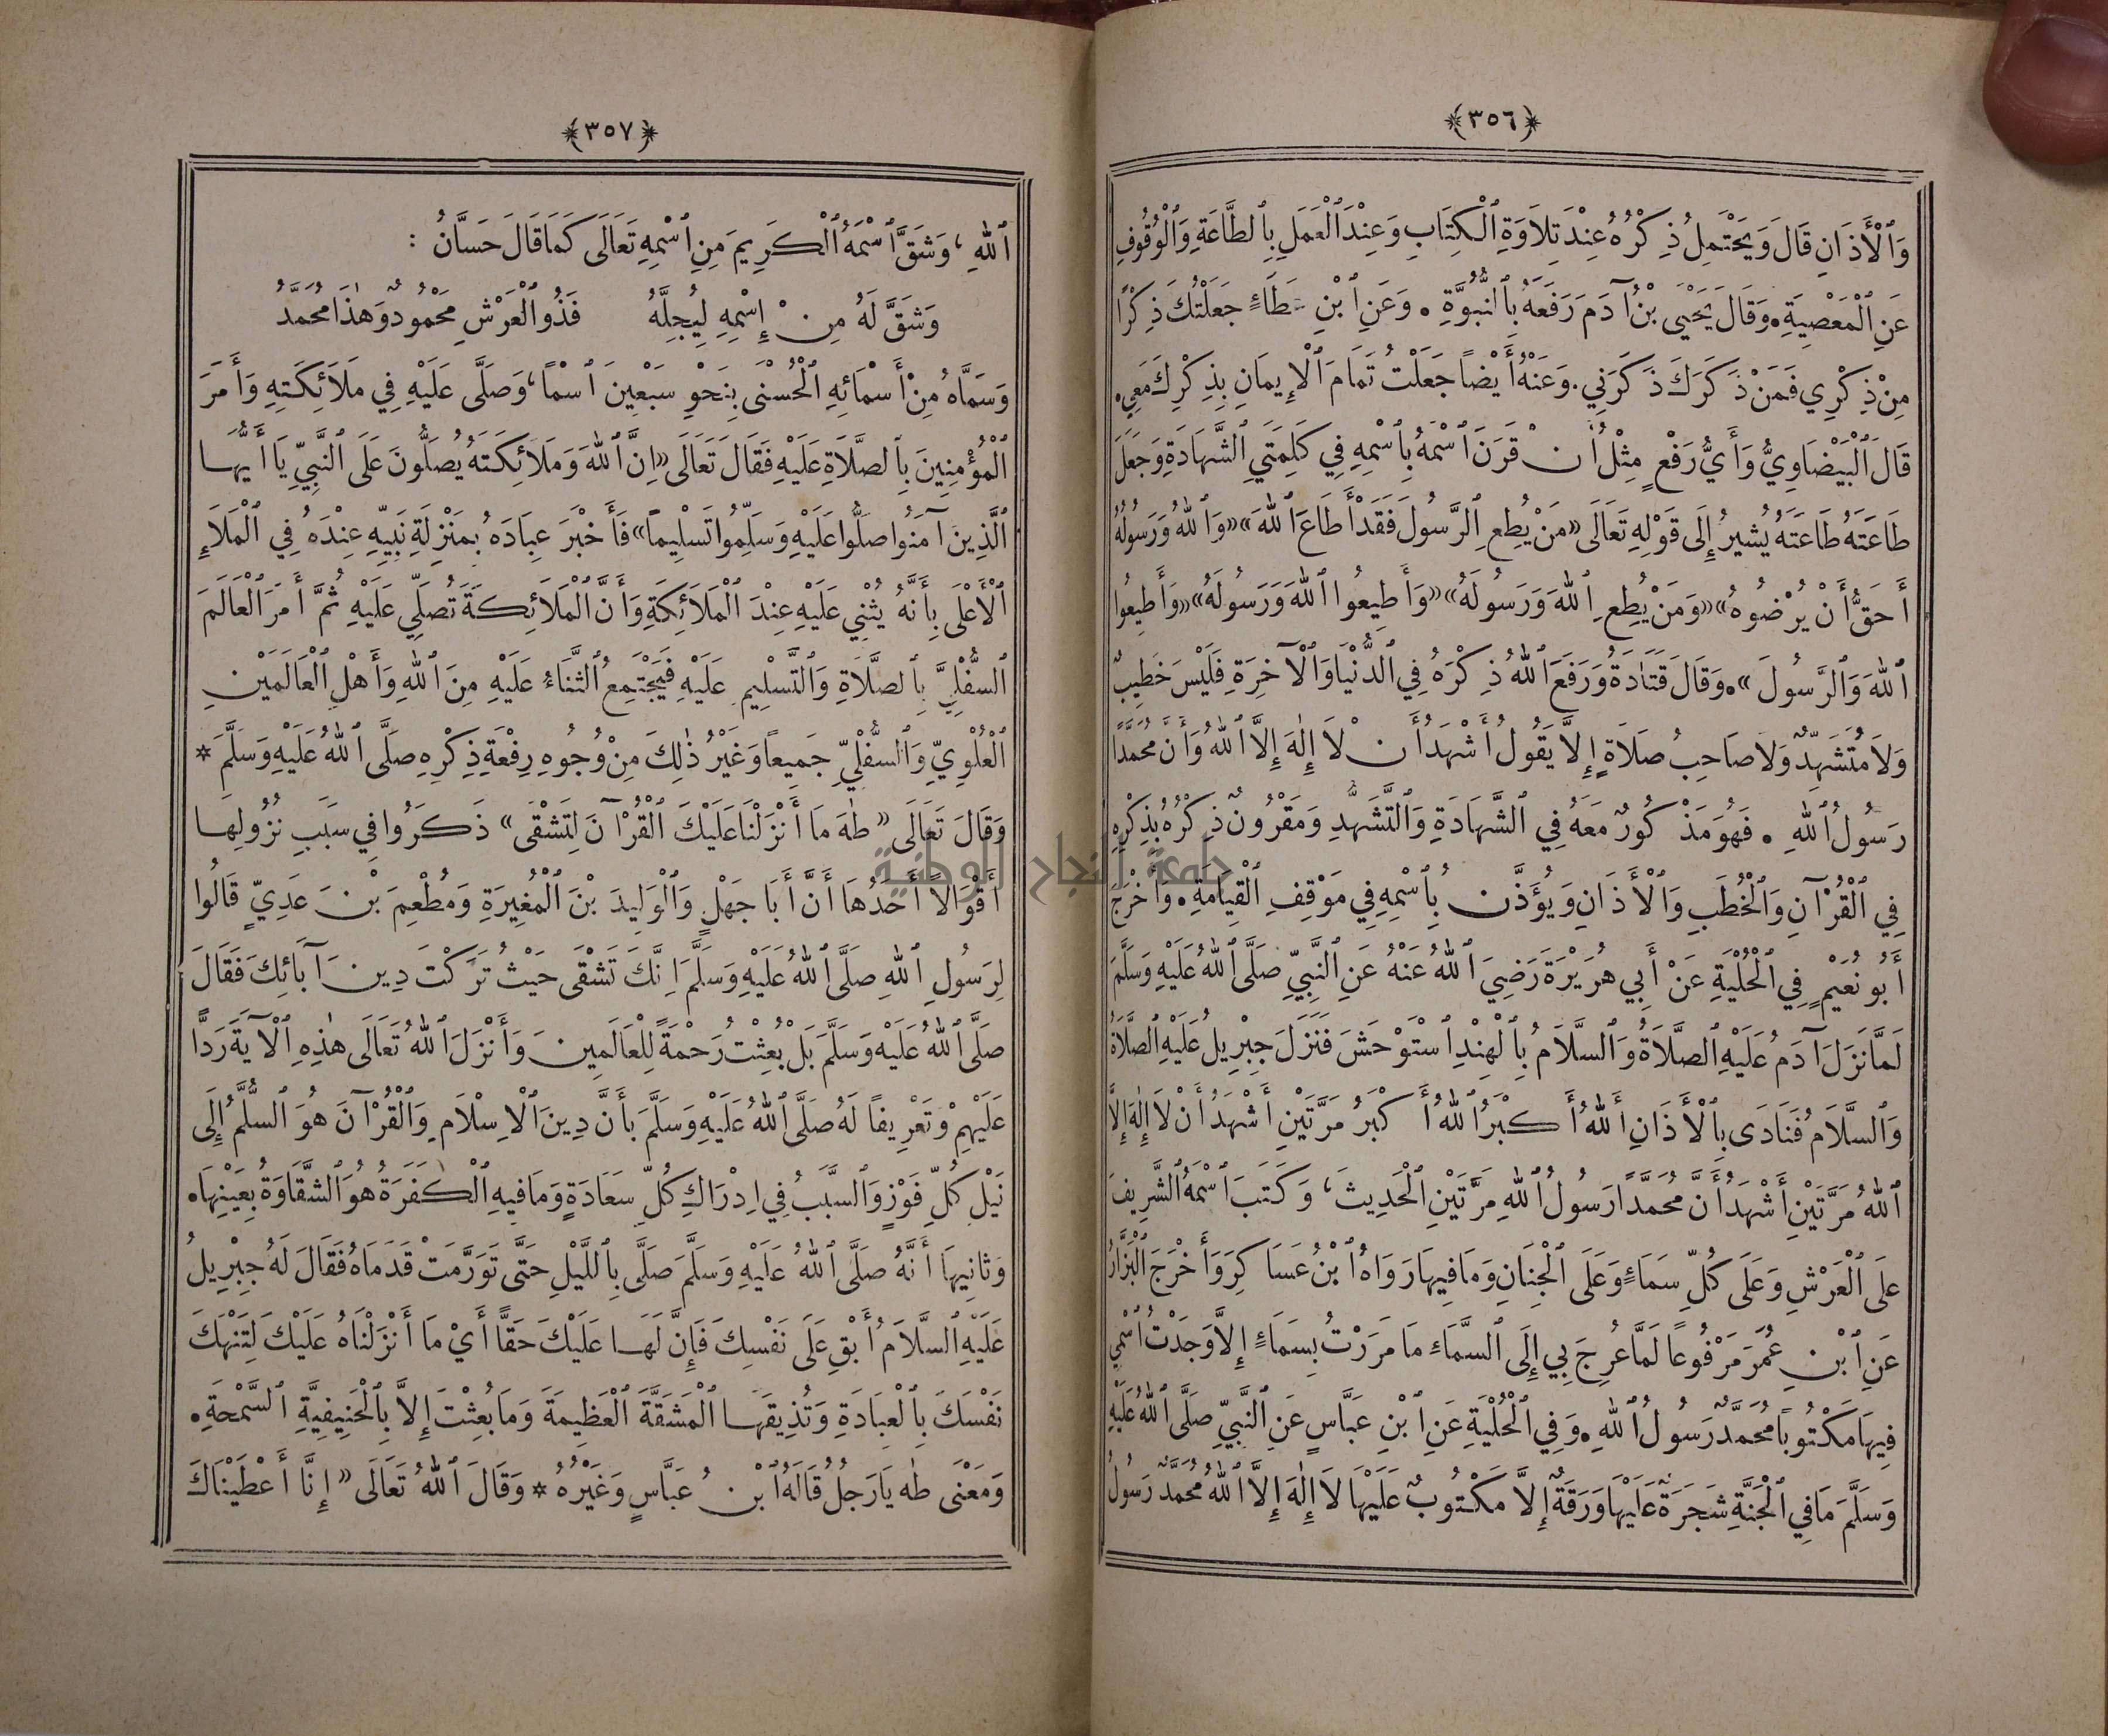 ﴿٣٥٦﴾
وَٱلْأَذَانِ قَالَ وَيَحْتَمِلُ ذِكْرُهُ عِنْدَ تِلَاوَةِ ٱلْكِتَابِ وَعِنْدَ ٱلْعَمَلِ بِٱلطَّاعَةِ وَٱلْوُقُوفِ
عَنِ ٱلْمَعْصِيَةِ . وَقَالَ يَحْيَى بْنُ آدَمَ رَفَعَهُ بِٱلنُّبُوَّةِ . وَعَنِ ٱبْنِ عَطَاءٍ جَعَلْتُكَ ذِكْرًا
مِنْ ذِكْرِي فَمَنْ ذَكَرَكَ ذَكَرَنِي . وَعَنْهُ أَيْضاً جَعَلْتُ تَمَامَ ٱلْإِيمَانِ بِذِكْرِكَ مَعِي .
قَالَ ٱلْبَيْضَاوِيُّ وَأَيُّ رَفْعٍ مِثْلُ أَنْ قَرَنَ ٱسْمَهُ بِٱسْمِهِ فِي كَلِمَتَيِ ٱلشَّهَادَةِ وَجَعَلَ
طَاعَتَهُ طَاعَتَهُ يُشِيرُ إِلَى قَوْلِهِ تَعَالَى «مَنْ يُطِعِ ٱلرَّسُولَ فَقَدْ أَطَاعَ ٱللهَ» «وَٱللهُ وَرَسُولُهُ
أَحَقُّ أَنْ يُرْضُوهُ» «وَمَنْ يُطِعِ ٱللهَ وَرَسُولَهُ» «وَأَطِيعُوا ٱللهَ وَرَسُولَهُ» «وَأَطِيعُوا
ٱللهَ وَٱلرَّسُولَ» . وَقَالَ قَتَادَةُ وَرَفَعَ ٱللهُ ذِكْرَهُ فِي ٱلدُّنْيَا وَٱلْآخِرَةِ فَلَيْسَ خَطِيبٌ
وَلَا مُتَشَهِّدٌ وَلَا صَاحِبُ صَلَاةٍ إِلَّا يَقُولُ أَشْهَدُ أَنْ لَا إِلٰهَ إِلَّا ٱللهُ وَأَنَّ مُحَمَّدًا
رَسُولُ ٱللهِ . فَهُوَ مَذْكُورٌ مَعَهُ فِي ٱلشَّهَادَةِ وَٱلتَّشَهُّدِ وَمَقْرُونٌ ذِكْرُهُ بِذِكْرِهِ
فِي ٱلْقُرْآنِ وَٱلْخُطَبِ وَٱلْأَذَانِ وَيُؤَذَّنُ بِٱسْمِهِ فِي مَوْقِفِ ٱلْقِيَامَةِ . وَأَخْرَجَ
أَبُو نُعَيْمٍ فِي ٱلْحُلْيَةِ عَنْ أَبِي هُرَيْرَةَ رَضِيَ ٱللهُ عَنْهُ عَنِ ٱلنَّبِيِّ صَلَّى ٱللهُ عَلَيْهِ وَسَلَّمَ
لَمَّا نَزَلَ آدَمُ عَلَيْهِ ٱلصَّلَاةُ وَٱلسَّلَامُ بِٱلْهِنْدِ ٱسْتَوْحَشَ فَنَزَلَ جِبْرِيلُ عَلَيْهِ ٱلصَّلَاةُ
وَٱلسَّلَامُ فَنَادَى بِٱلْأَذَانِ أَللهُ أَكْبَرُ ٱللهُ أَكْبَرُ مَرَّتَيْنِ أَشْهَدُ أَنْ لَا إِلٰهَ إِلَّا
ٱللهُ مَرَّتَيْنِ أَشْهَدُ أَنَّ مُحَمَّدًا رَسُولُ ٱللهِ مَرَّتَيْنِ ٱلْحَدِيثَ ، وَكَتَبَ ٱسْمَهُ ٱلشَّرِيفَ
عَلَى ٱلْعَرْشِ وَعَلَى كُلِّ سَمَاءٍ وَعَلَى ٱلْجِنَانِ وَمَا فِيهَا رَوَاهُ ٱبْنُ عَسَاكِرَ وَأَخْرَجَ ٱلْبَزَّارُ
عَنِ ٱبْنِ عُمَرَ مَرْفُوعًا لَمَّا عُرِجَ بِي إِلَى ٱلسَّمَاءِ مَا مَرَرْتُ بِسَمَاءٍ إِلَّا وَجَدْتُ ٱسْمِي
فِيهَا مَكْتُوبًا مُحَمَّدٌ رَسُولُ ٱللهِ . وَفِي ٱلْحُلْيَةِ عَنِ ٱبْنِ عَبَّاسٍ عَنِ ٱلنَّبِيِّ صَلَّى ٱللهُ عَلَيْهِ
وَسَلَّمَ مَا فِي ٱلْجَنَّةِ شَجَرَةٌ عَلَيْهَا وَرَقَةٌ إِلَّا مَكْتُوبٌ عَلَيْهَا لَا إِلٰهَ إِلَّا ٱللهُ مُحَمَّدٌ رَسُولُ
﴿٣٥٧﴾
ٱللهِ ، وَشَقَّ ٱسْمَهُ ٱلْكَرِيمَ مِنِ ٱسْمِهِ تَعَالَى كَمَا قَالَ حَسَّانُ :
وَشَقَّ لَهُ مِنْ إِسْمِهِ لِيُجِلَّهُ فَذُو ٱلْعَرْشِ مَحْمُودٌ وَهٰذَا مُحَمَّدُ
وَسَمَّاهُ مِنْ أَسْمَائِهِ ٱلْحُسْنَى بِنَحْوِ سَبْعِينَ ٱسْمًا ، وَصَلَّى عَلَيْهِ فِي مَلَائِكَتِهِ وَأَمَرَ
ٱلْمُؤْمِنِينَ بِٱلصَّلَاةِ عَلَيْهِ فَقَالَ تَعَالَى «إِنَّ ٱللهَ وَمَلَائِكَتَهُ يُصَلُّونَ عَلَى ٱلنَّبِيِّ يَا أَيُّهَا
ٱلَّذِينَ آمَنُوا صَلُّوا عَلَيْهِ وَسَلِّمُوا تَسْلِيمًا» فَأَخْبَرَ عِبَادَهُ بِمَنْزِلَةِ نَبِيِّهِ عِنْدَهُ فِي ٱلْمَلَإِ
ٱلْأَعْلَى بِأَنَّهُ يُثْنِي عَلَيْهِ عِنْدَ ٱلْمَلَائِكَةِ وَأَنَّ ٱلْمَلَائِكَةَ تُصَلِّي عَلَيْهِ ثُمَّ أَمَرَ ٱلْعَالَمَ
ٱلسُّفْلِيَّ بِٱلصَّلَاةِ وَٱلتَّسْلِيمِ عَلَيْهِ فَيَجْتَمِعُ ٱلثَّنَاءُ عَلَيْهِ مِنَ ٱللهِ وَأَهْلِ ٱلْعَالَمَيْنِ
ٱلْعُلْوِيِّ وَٱلسُّفْلِيِّ جَمِيعاً وَغَيْرُ ذٰلِكَ مِنْ وُجُوهِ رِفْعَةِ ذِكْرِهِ صَلَّى ٱللهُ عَلَيْهِ وَسَلَّمَ *
وَقَالَ تَعَالَى « طٰهَ مَا أَنْزَلْنَا عَلَيْكَ ٱلْقُرْآنَ لِتَشْقَى » ذَكَرُوا فِي سَبَبِ نُزُولِهَا
أَقْوَالًا أَحَدُهَا أَنَّ أَبَا جَهْلٍ وَٱلْوَلِيدَ بْنَ ٱلْمُغِيرَةِ وَمُطْعِمَ بْنَ عَدِيٍّ قَالُوا
لِرَسُولِ ٱللهِ صَلَّى ٱللهُ عَلَيْهِ وَسَلَّمَ إِنَّكَ تَشْقَى حَيْثُ تَرَكْتَ دِينَ آبَائِكَ فَقَالَ
صَلَّى ٱللهُ عَلَيْهِ وَسَلَّمَ بَلْ بُعِثْتُ رَحْمَةً لِلْعَالَمِينَ وَأَنْزَلَ ٱللهُ تَعَالَى هٰذِهِ ٱلْآيَةَ رَدًّا
عَلَيْهِمْ وَتَعْرِيفاً لَهُ صَلَّى ٱللهُ عَلَيْهِ وَسَلَّمَ بِأَنَّ دِينَ ٱلْإِسْلَامِ وَٱلْقُرْآنَ هُوَ ٱلسُّلَّمُ إِلَى
نَيْلِ كُلِّ فَوْزٍ وَٱلسَّبَبُ فِي إِدْرَاكِ كُلِّ سَعَادَةٍ وَمَا فِيهِ ٱلْكَفَرَةُ هُوَ ٱلشَّقَاوَةُ بِعَيْنِهَا .
وَثَانِيهَا أَنَّهُ صَلَّى ٱللهُ عَلَيْهِ وَسَلَّمَ صَلَّى بِٱللَّيْلِ حَتَّى تَوَرَّمَتْ قَدَمَاهُ فَقَالَ لَهُ جِبْرِيلُ
عَلَيْهِ ٱلسَّلَامُ أَبْقِ عَلَى نَفْسِكَ فَإِنَّ لَهَا عَلَيْكَ حَقًّا أَيْ مَا أَنْزَلْنَاهُ عَلَيْكَ لِتَنْهَكَ
نَفْسَكَ بِٱلْعِبَادَةِ وَتُذِيقَهَا ٱلْمَشَقَّةَ ٱلْعَظِيمَةَ وَمَا بُعِثْتَ إِلَّا بِٱلْحَنِيفِيَّةِ ٱلسَّمْحَةِ .
وَمَعْنَى طٰه يَا رَجُلُ قَالَهُ ٱبْنُ عَبَّاسٍ وَغَيْرُهُ * وَقَالَ ٱللهُ تَعَالَى « إِنَّا أَعْطَيْنَاكَ
جامعة النجاح الوطنية